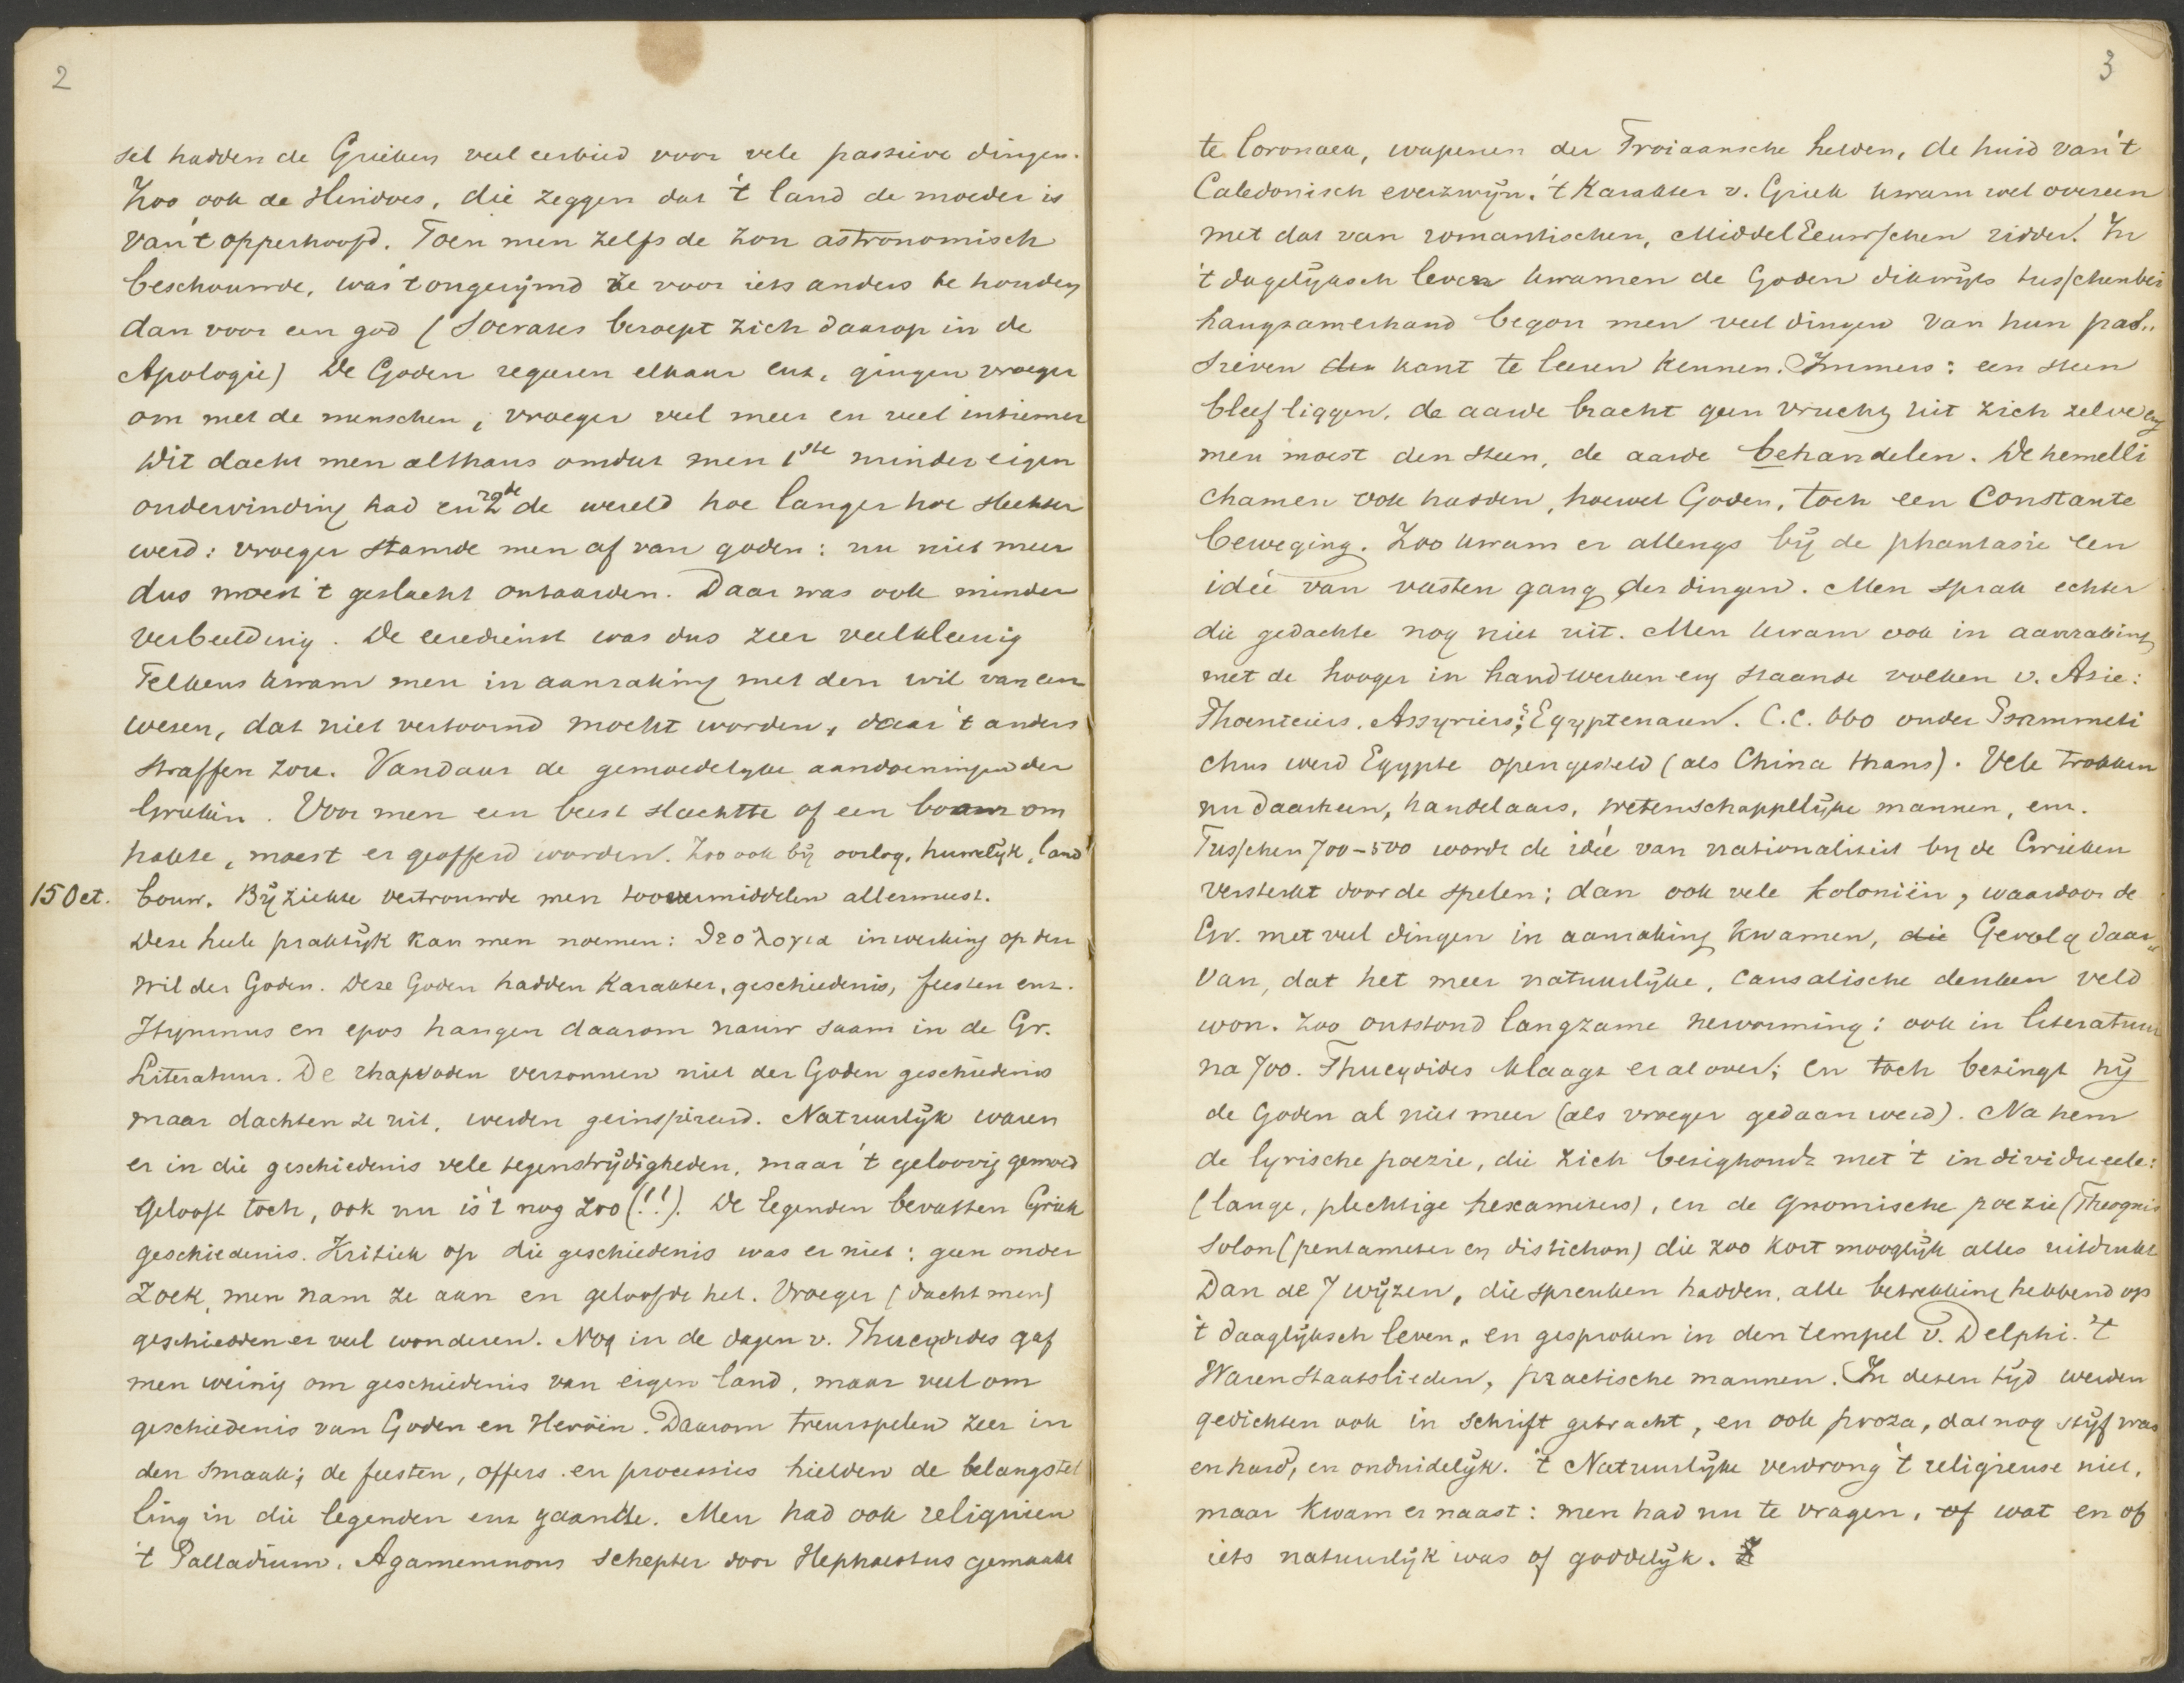 2
sel hadden de Grieken veel eerbied voor vele passieve dingen.
Zoo ook de Hindoes, die zeggen dat 't land de moeder is
van 't opperhoofd. Toen men zelfs de zon astronomisch
beschouwde, was 't ongerijmd ze voor iets anders te houden
dan voor een god (Socrates beroept zich daarop in de
Apologie) De Goden regeeren elkaar enz, gingen vroeger
om met de menschen, vroeger veel meer en veel intiemer
Dit dacht men althans omdat men 1ste minder eigen
ondervinding had en 2de de wereld hoe langer hoe slechter
werd: vroeger stamde men af van goden: nu niet meer
dus moest 't geslacht ontaarden. Daar was ook minder
verbeelding. De eeredienst was dus zeer veelkleurig
Telkens kwam men in aanraking met den wil van een
wezen, dat niet vertoornd mocht worden, daar 't anders
straffen zou. Vandaar de gemoedelyke aandoeningen der
Grieken. Voor men een beest slachtte of een boom om
hakte, moest er geofferd worden. Zoo ook bij oorlog, huwelijk, land
15 Oct. bouw. Bij ziekte vertrouwde men toovermiddelen allermeest.
Deze heele praktijk kan men noemen: θεολογια inwerking op den
wil der Goden. Deze Goden hadden karakter, geschiedenis, feesten enz.
Hymnus en epos hangen daarom nauw saam in de Gr.
Literatuur. De rhapsoden verzonnen niet der Goden geschiedenis
maar dachten ze uit, werden geinspireerd. Natuurlijk waren
er in die geschiedenis vele tegenstrijdigheden, maar 't geloovig gemoed
gelooft toch, ook nu is 't nog zoo (!!). De legenden bevatten Griek
geschiedenis. Kritiek op die geschiedenis was er niet: geen onder
zoek, men nam ze aan en geloofde het. Vroeger (dacht men)
geschiedden er veel wonderen. Nog in de dagen v. Thucydides gaf
men weinig om geschiedenis van eigen land, maar veel om
geschiedenis van Goden en Heroën. Daarom treurspelen zeer in
den smaak; de feesten, offers en processies hielden de belangstel
ling in die legenden enz gaande. Men had ook reliquien
't Palladium, Agamemnons schepter door Hephaestus gemaakt
3
te Coronaea, wapenen der Troiaansche helden, de huid van 't
Caledonisch everzwijn. 't Karakter v. Griek kwam wel overeen
met dat van romantischen, MiddelEeuwschen ridder. In
't dagelijksch leven kwamen de Goden dikwijls tusschenbei
Langzamerhand begon men veel dingen van hun pas..
sieven den kant te leeren kennen. Immers: een steen
bleef liggen, de aarde bracht geen vrucht uit zich zelve en
men moest den steen, de aarde behandelen. De hemelli
chamen ook hadden, hoewel Goden, toch een constante
beweging. Zoo kwam er allengs bij de phantasie een
ideé van vasten gang der dingen. Men sprak echter
die gedachte nog niet uit. Men kwam ook in aanraking
met de hooger in handwerken enz staande volken v. Azie:
Phoeniciërs, Assyriers; Egyptenaren. C.C. 660 onder Psammeti
chus werd Egypte opengesteld (als China thans). Vele trokken
nu daarheen, handelaars, wetenschappelijke mannen, enz.
Tusschen 700-500 wordt de ideé van nationaliteit by de Grieken
versterkt door de spelen; dan ook vele koloniën, waardoor de
Gr. met veel dingen in aanraking kwamen, die Gevolg daar
van, dat het meer natuurlijke, causalische denken veld
won. Zoo ontstond langzame hervorming: ook in literatuur
na 700. Thucydides klaagt er al over; en toch bezingt hij
de Goden al niet meer (als vroeger gedaan werd). Na hem
de lyrische poezie, die zich bezighoudt met 't individueele:
(lange, plechtige hexameters), en de gnomische poezie (Theognis
Solon (pentameter en distichon) die zoo kort mooglijk alles uitdrukt
Dan de 7 wijzen, die spreuken hadden, alle betrekking hebbend op
't daaglijksch leven, en gesproken in den tempel v. Delphi. 't
Waren staatslieden, practische mannen. In dezen tijd werden
gedichten ook in schrift gebracht, en ook proza, dat nog stijf was
en hard, en onduidelijk. 't Natuurlijke verdrong 't religieuse niet,
maar kwam er naast: men had nu te vragen, of wat en of
iets natuurlijk was of goddelijk.